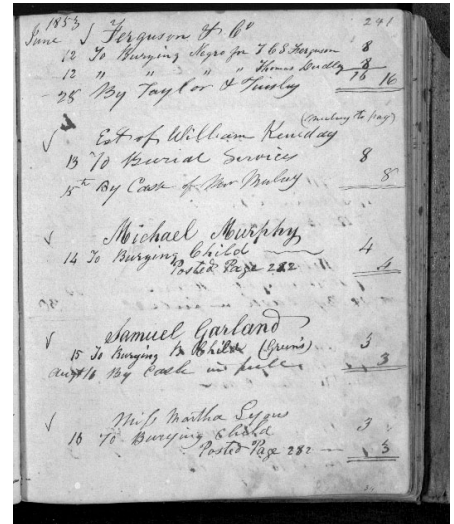 1853 241
June Ferguson & Co
12 To Burying Negro for T C S Ferguson 8
12 " " " " Thomas Dudley 8
16 16
28 By Taylor & Tinsley
Est of William Kenaday (Mulvey to pay)
13 To Burial Services 8
15th By Cash of Mr Mulvey 8
Michael Murphy
14 To Burying Child 4
Posted Page 282 4
Samuel Garland
15 To Burying Child (Green's) 3
Augt 16 By Cash in full 3
Miss Martha Lyons
16 To Burying Child 3
Posted Page 282 3